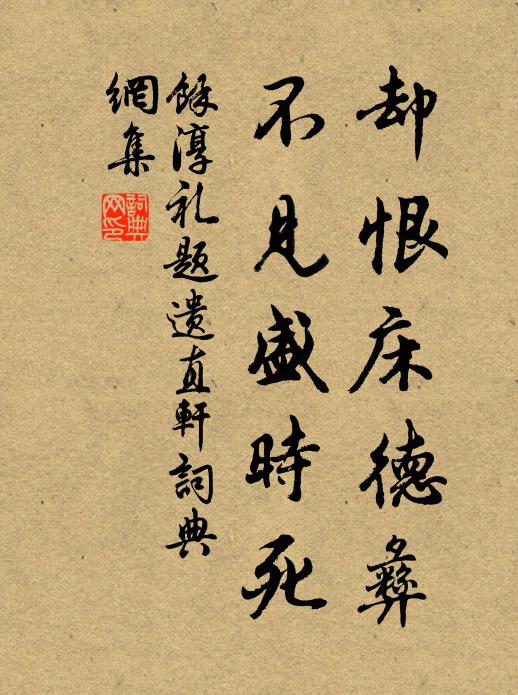 却恨床德彝
不見盛時死
餘淳礼題遺直軒詞典
網集
詞典
网印